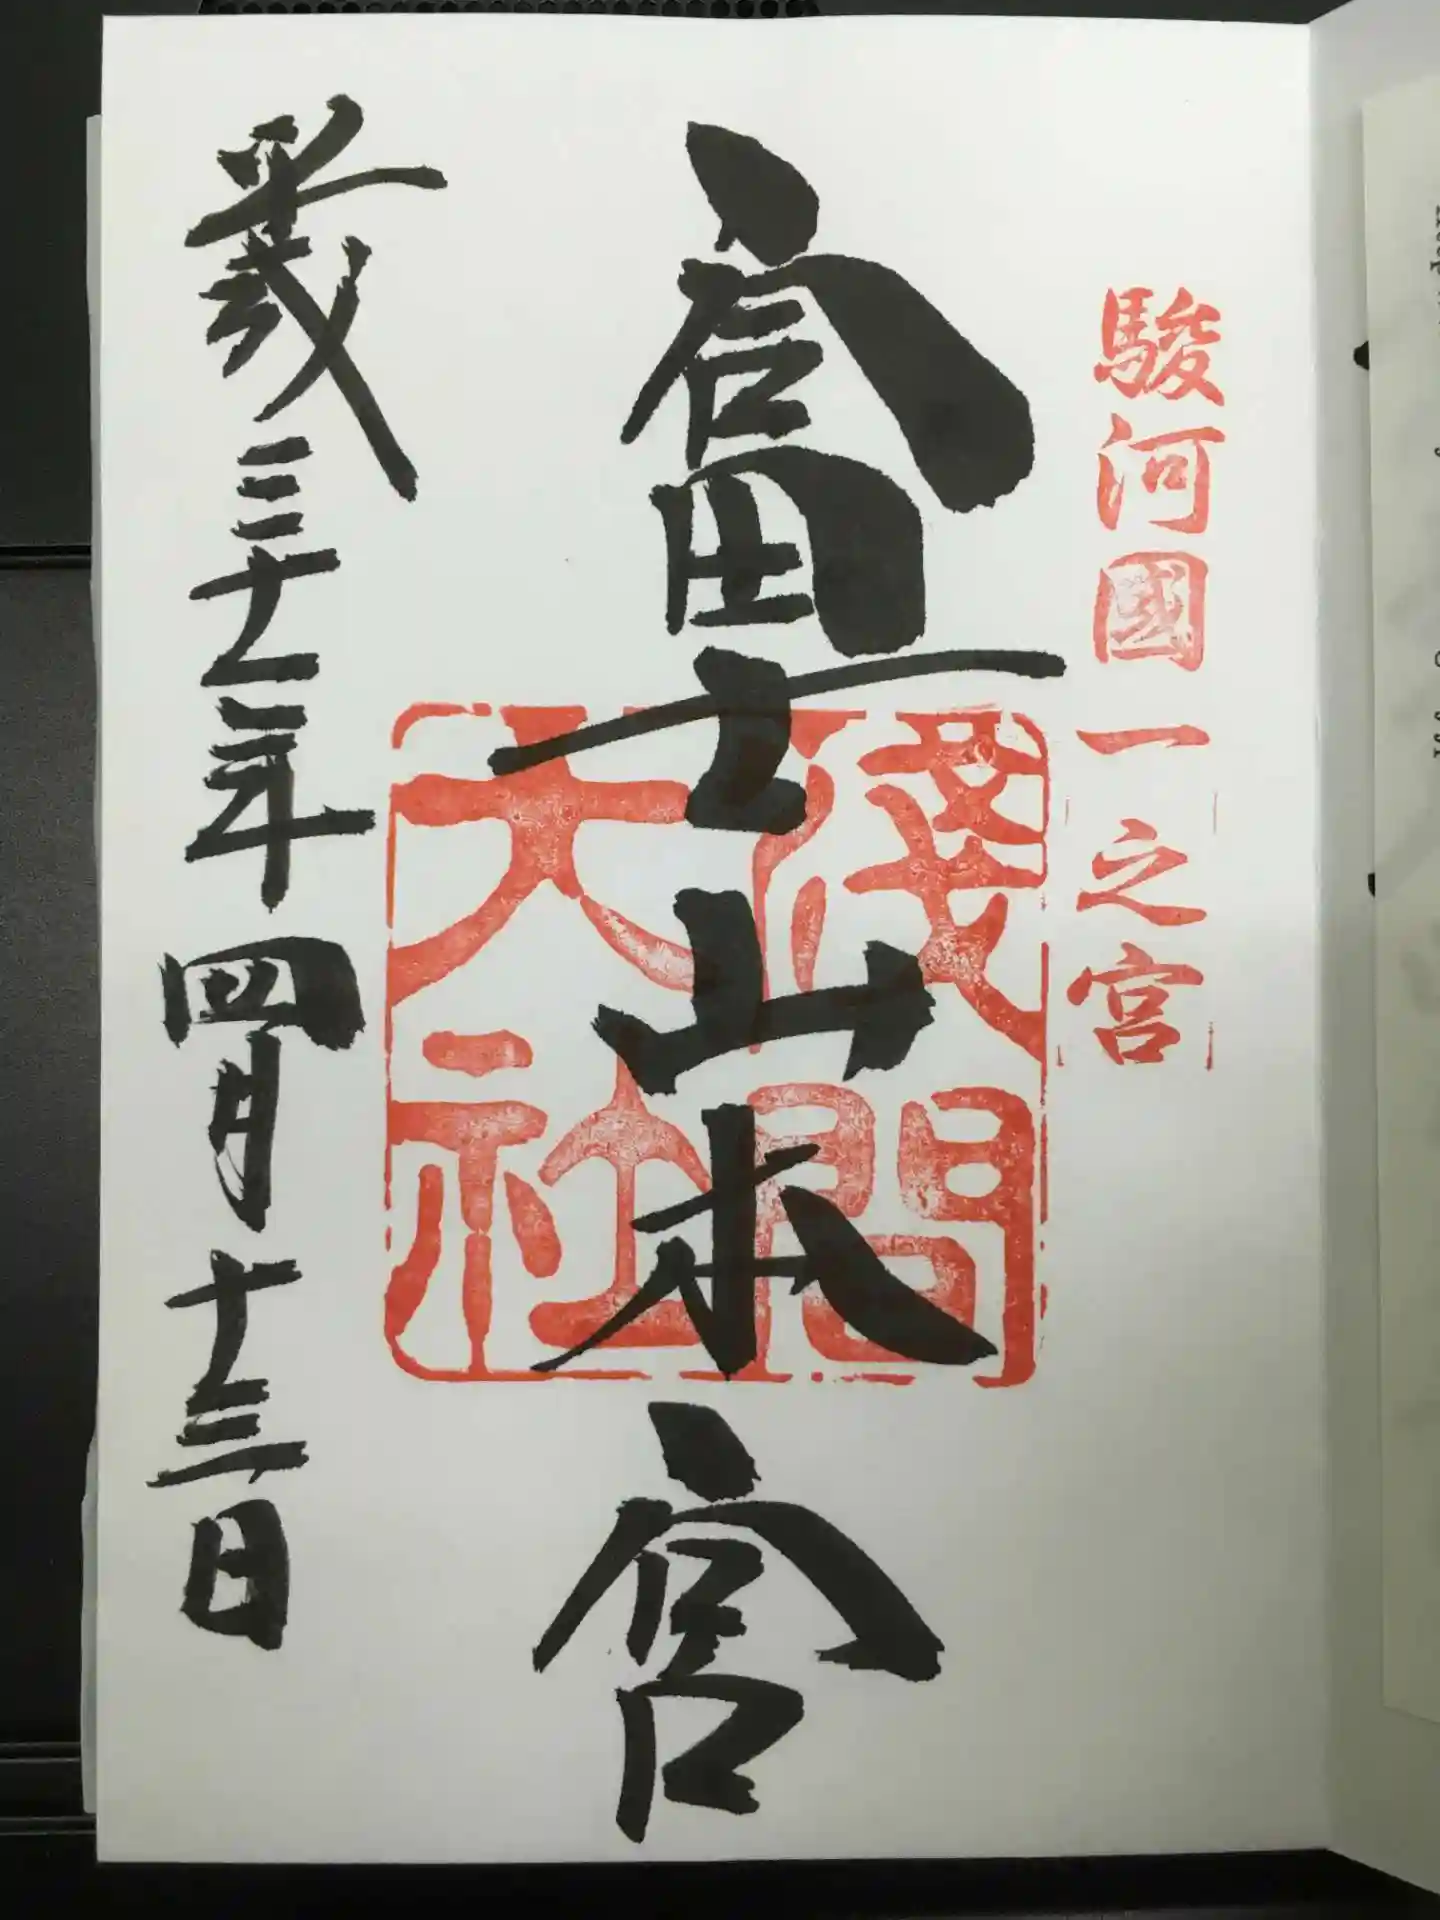 駿河國一之宮
富士山本宮
淺間
大社
平成三十一年四月十三日